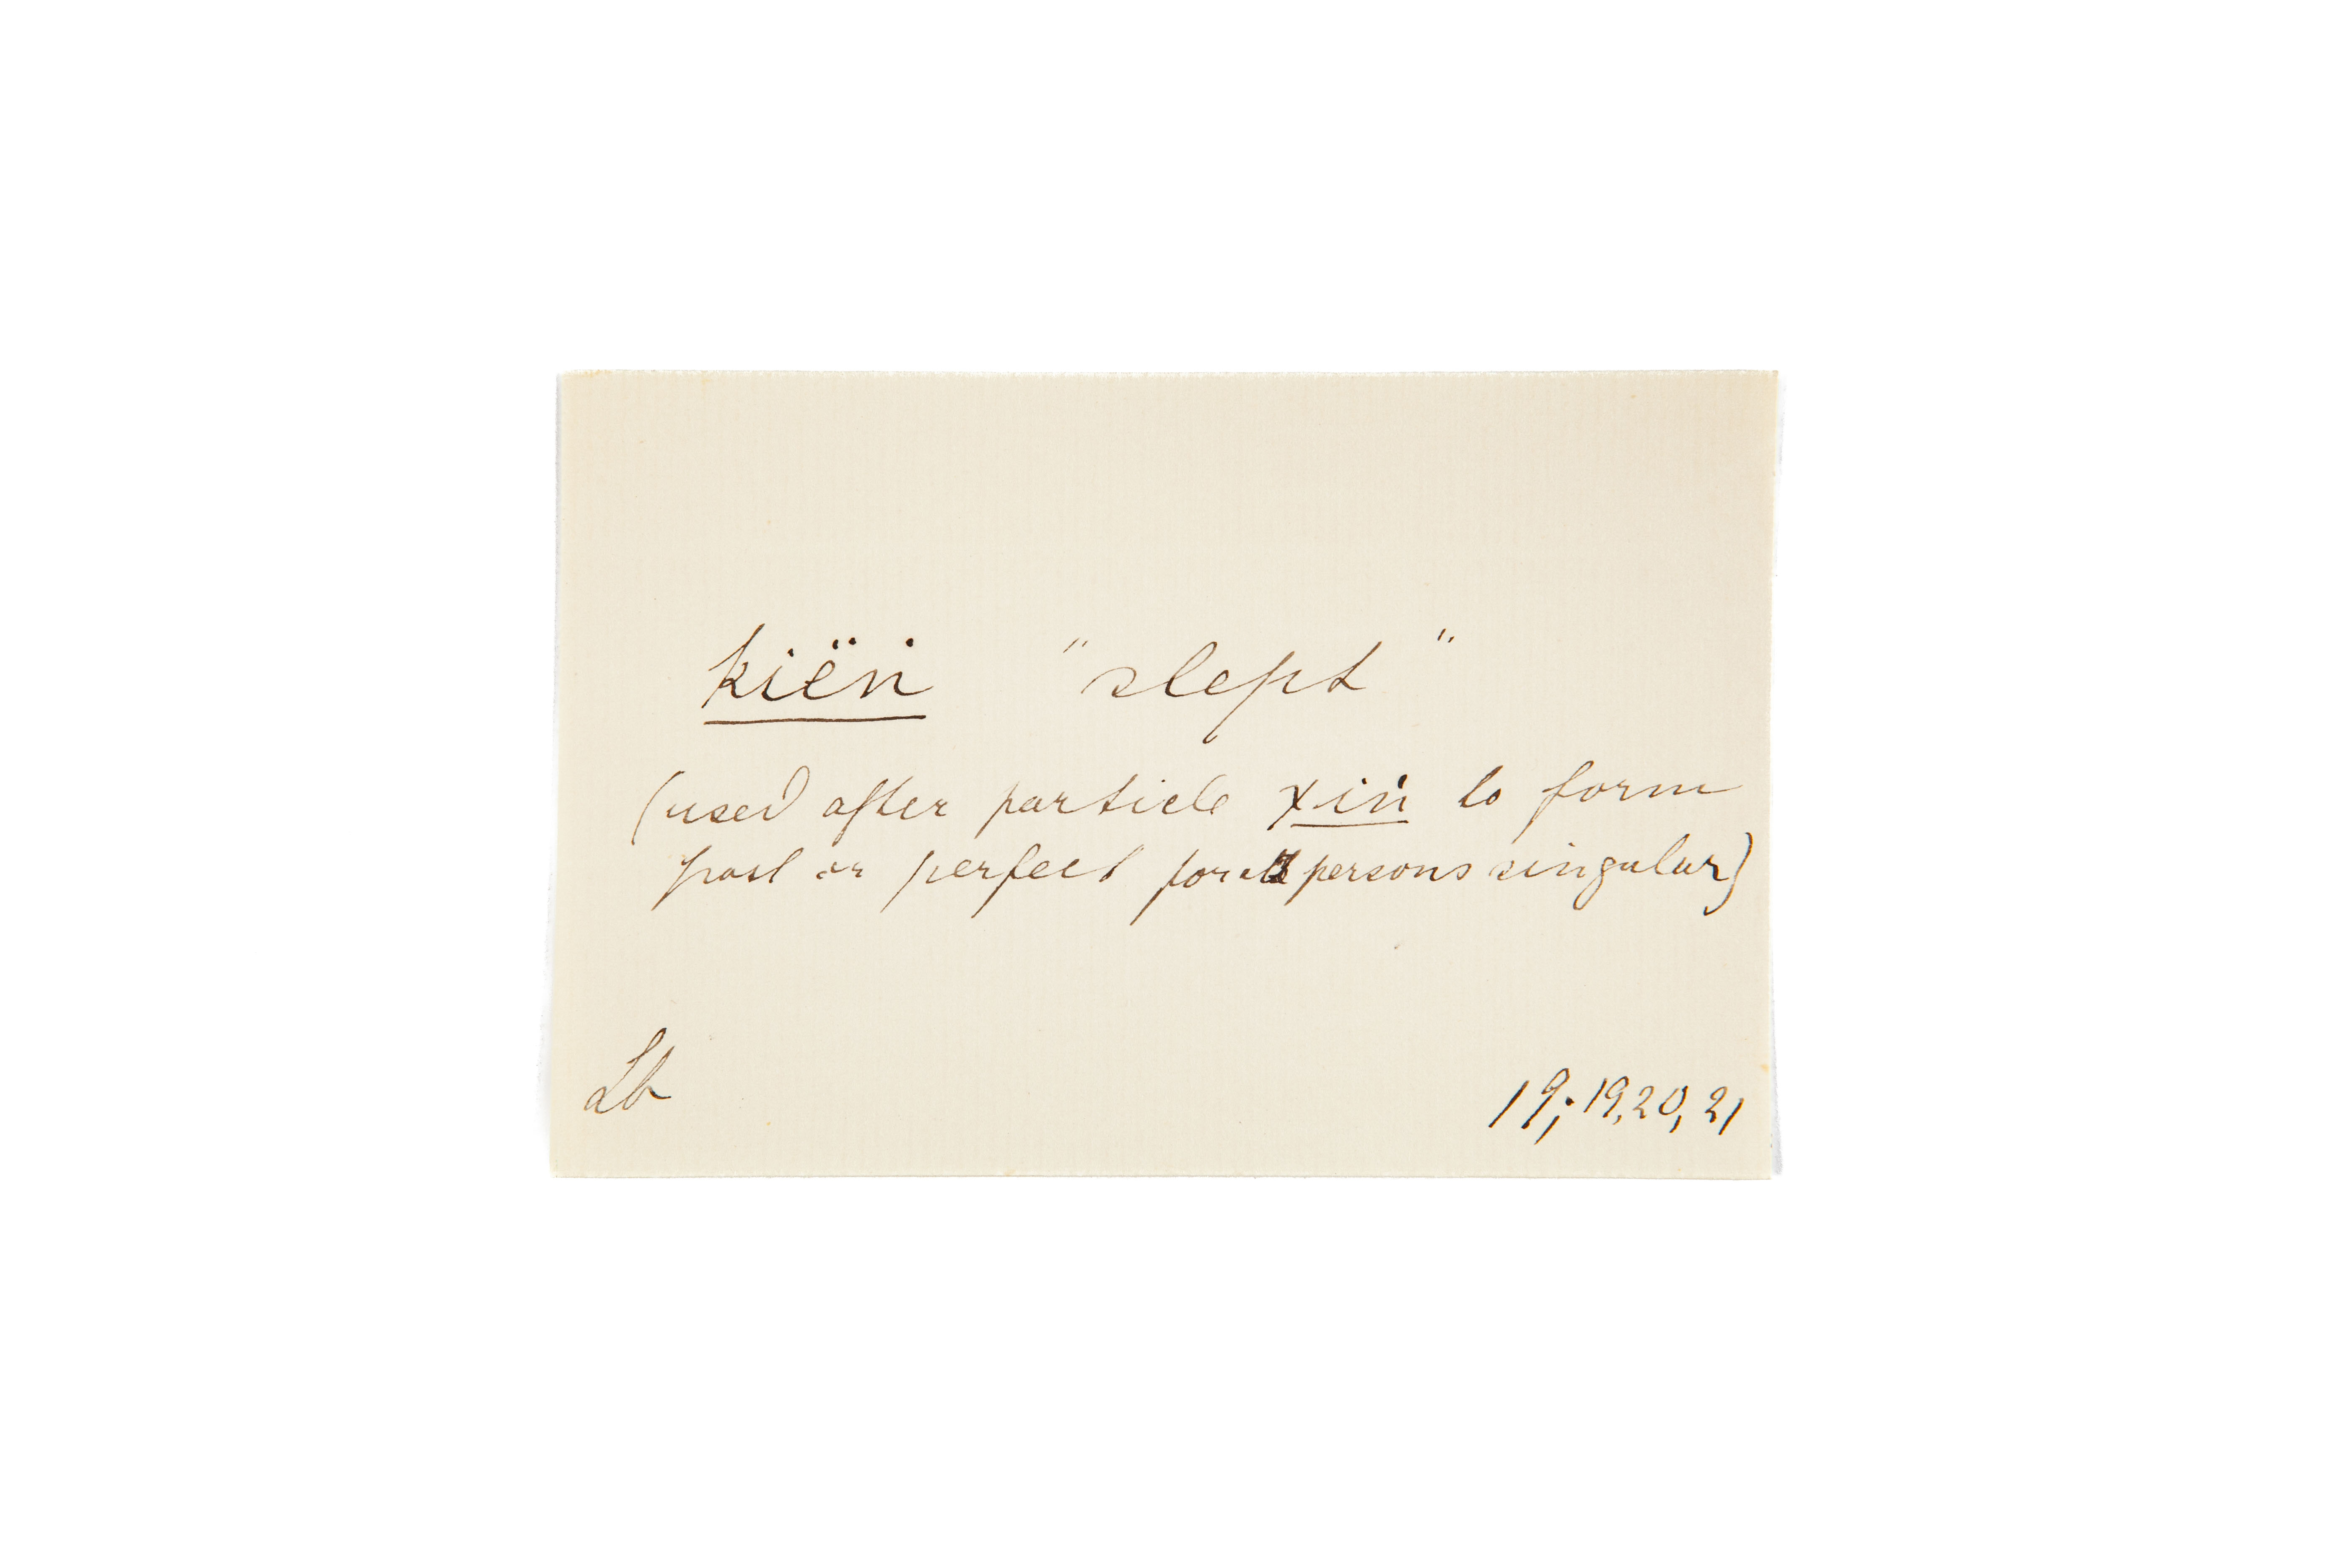 kiëṅ "slept"
(used after particle χiṅ to form
past or perfect for all persons singular)
Lb 19; 19, 20, 21